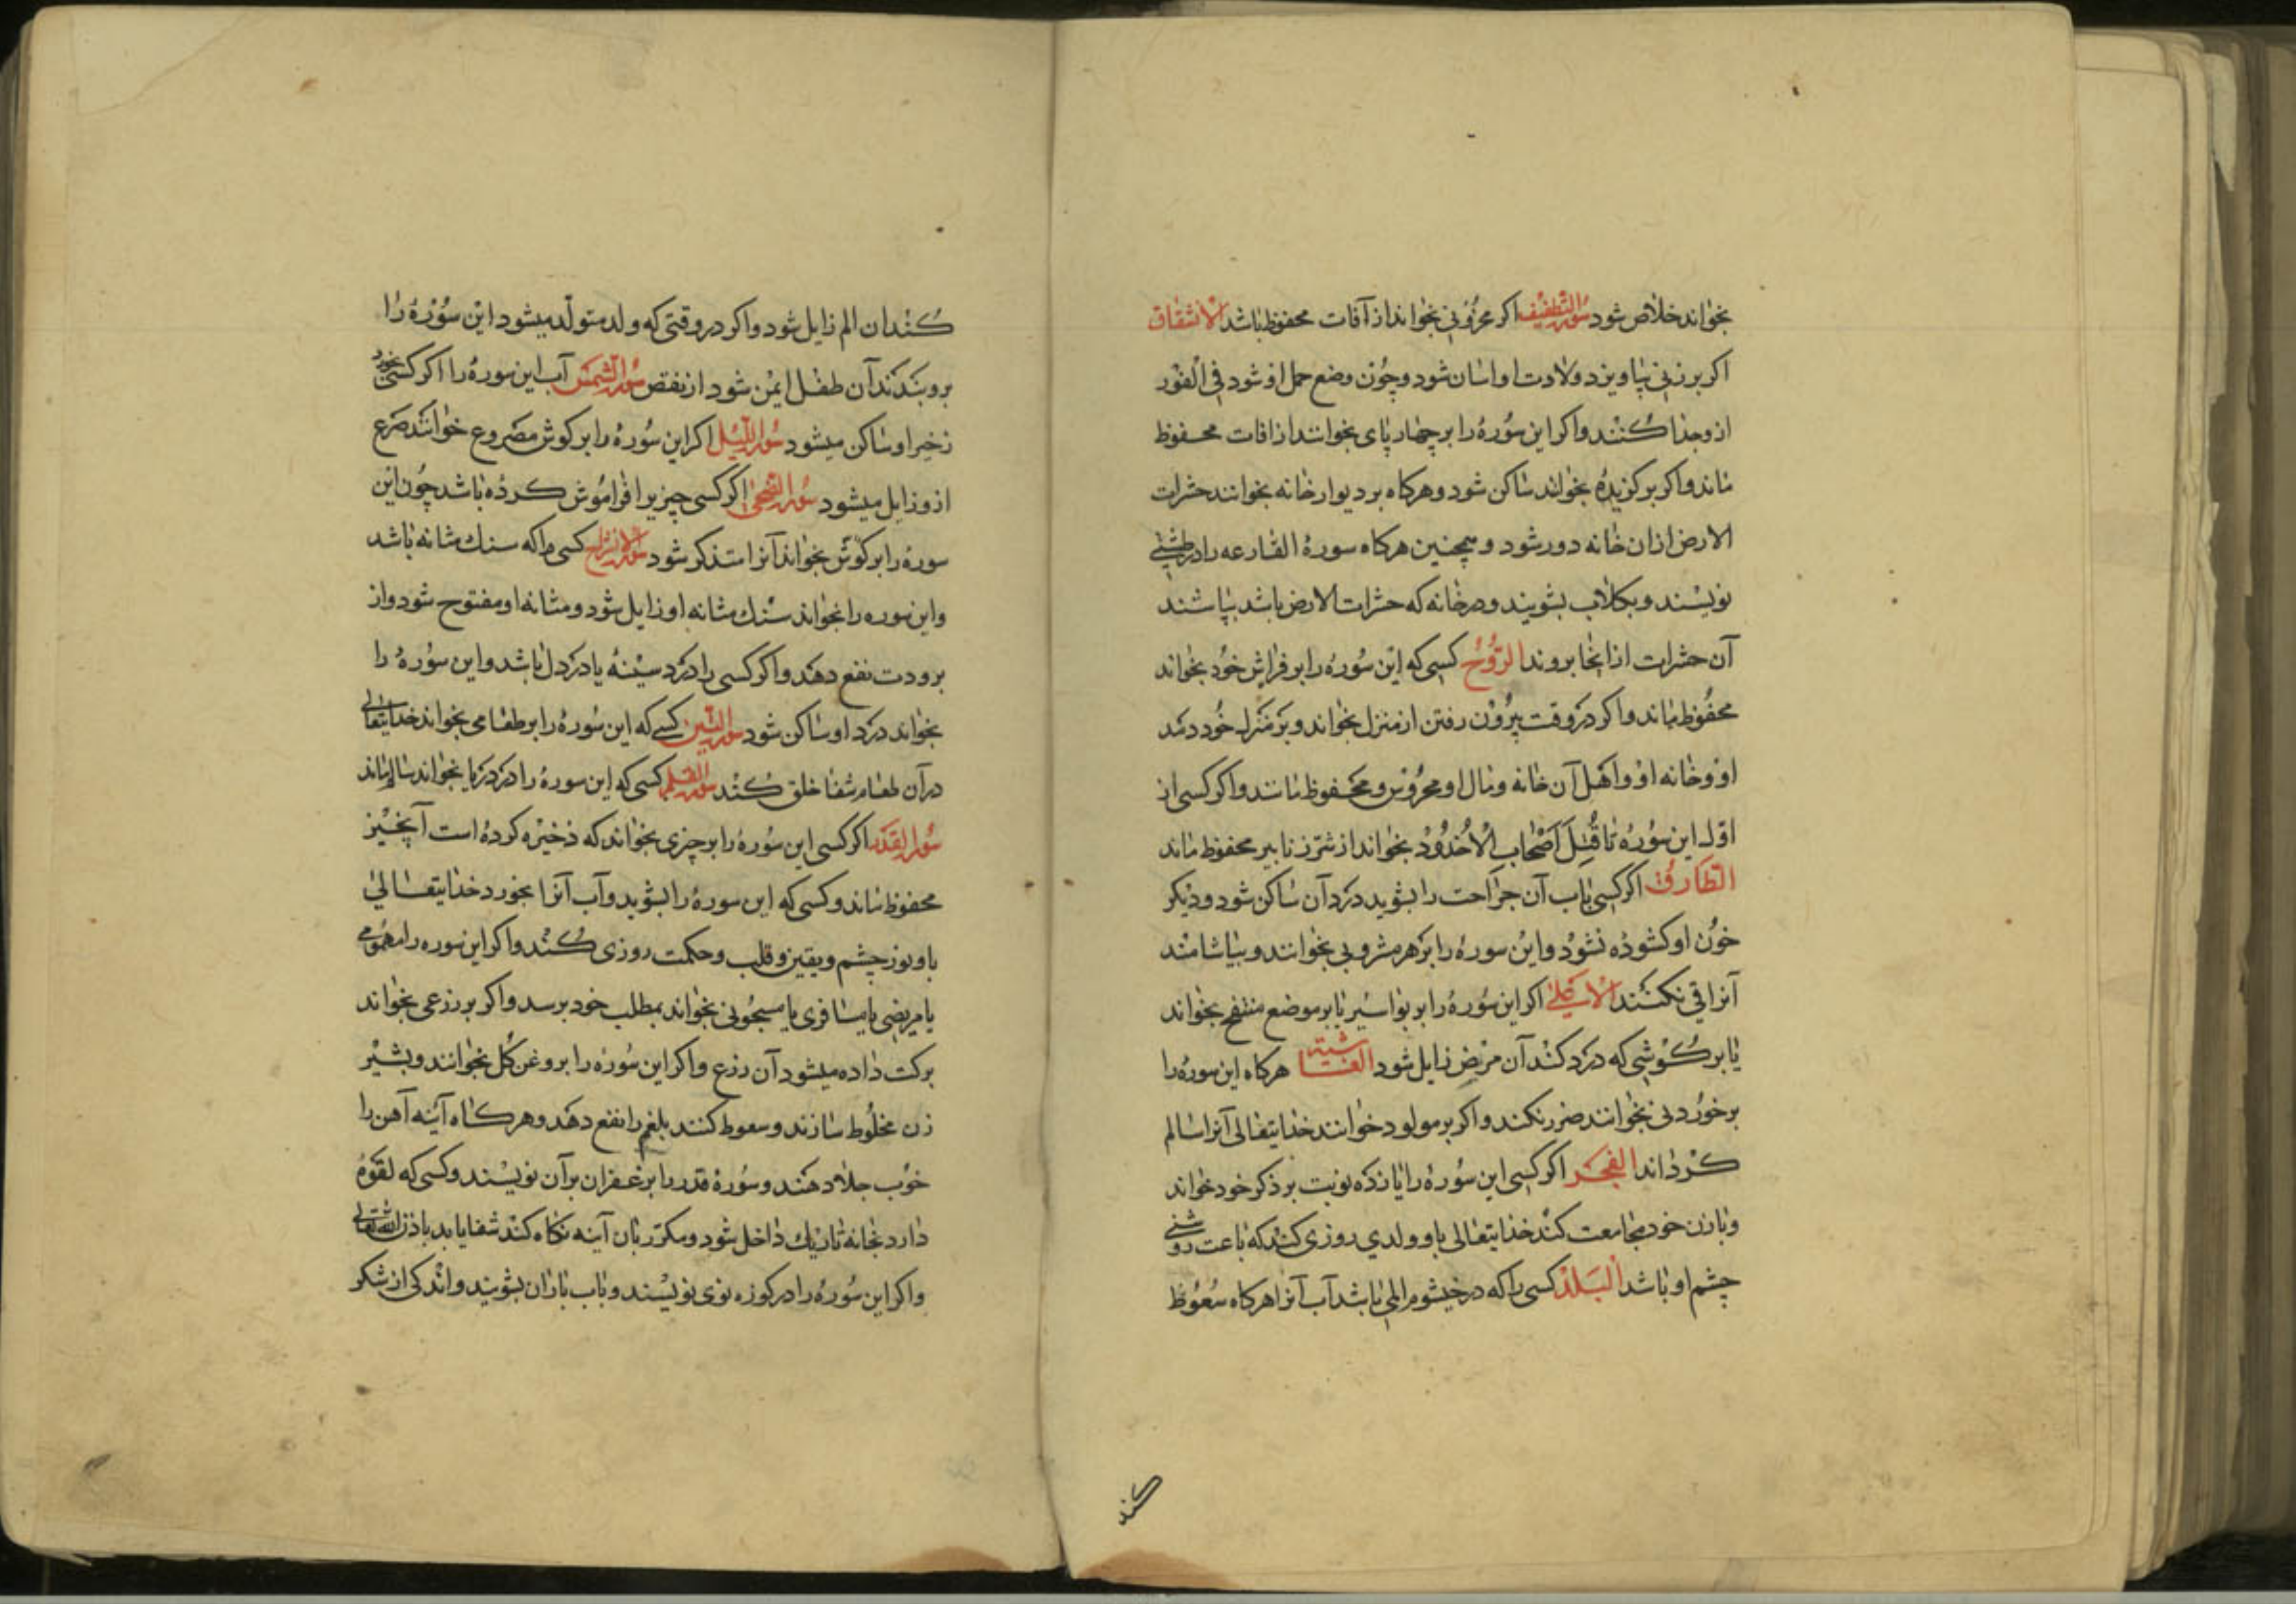 بخواند خلاص شود سورة التطفیف اکر بر مخزونی بخوانند از آفات محفوظ باشد الانشقاق
اکر بر زنی بیاویزد ولادت او اسان شود و چون وضع حمل او شود فی الفور
ازو جدا کنند و اکر این سوره را بر چهار پای بخوانند از افات محفوظ
ماند و اکر بر کزیده بخواند ساکن شود و هرکاه بر دیوار خانه بخوانند حشرات
الارض ازان خانه دور شود و همچنین هرکاه سورة القارعه را در طشتی
نویسند و بکلاب بشویند و در خانه که حشرات الارض باشد بپاشند
آن حشرات ازانجا بروند البروج کسی که این سوره را بر فراش خود بخواند
محفوظ ماند و اکر در وقت بیرون رفتن از منزل بخواند و بر منزل خود دمد
او و خانه او و اهل آن خانه و مال او محروس و محفوظ ماند و اکر کسی از
اول این سوره تا قُتِلَ اَصْحابُ الْاُخْدُوُدْ بخواند از شر زنابیر محفوظ ماند
الطارق اکر کسی باب آن جراحت را بشوید درد آن ساکن شود و دیکر
خون او کشوده نشود و این سوره را بر هر مشروبی بخوانند و بیاشامند
آنرا قی نکنند الاعلی اکر این سوره را بر بواسیر یا بر موضع منتفخ بخواند
یا بر کوشی که درد کند آن مرض زایل شود الغاشیة هرکاه این سوره را
بر خوردنی بخوانند ضرر نکند و اکر بر مولود خوانند خدایتعالی آنرا سالم
کرداند الفجر اکر کسی این سوره را یازده نوبت بر ذکر خود خواند
و با زن خود مجامعت کند خدایتعالی باو ولدی روزی کند که باعث روشنی
چشم او باشد البلد کسی را که در خیشوم المی باشد آب آنرا هرکاه سعوط
کند
کند ان الم زایل شود و اکر در وقتی که ولد متولد میشود این سوره را
برو بندند آن طفل ایمن شود از نقص سورة الشمس آب این سوره را اکر کسی بخورد
زخیر او ساکن میشود سورة اللیل اکر این سوره را بر کوش مصروع خوانند صرع
ازو زایل میشود سورة الضحی اکر کسی چیزیرا فراموش کرده باشد چون این
سوره را بر کوش بخواند آنرا متذکر شود سورة الانشراح کسی را که سنک مثانه باشد
و این سوره را بخواند سنک مثانه او زایل شود و مثانه او مفتوح شود و از
برودت نفع دهد و اکر کسی را درد سینه یا درد دل باشد و این سوره را
بخواند درد او ساکن شود سورة التین کسی که این سوره را بر طعامی بخواند خدایتعالی
در آن طعام شفا خلق کند سورة القلم کسی که این سوره را در دریا بخواند سالم ماند
سورة القدر اکر کسی این سوره را بر چیزی بخواند که ذخیره کرده است آنچیز
محفوظ ماند و کسی که این سوره را بشوید و آب آنرا بخورد خدایتعالی
باو نور چشم و یقین و قلب و حکمت روزی کند و اکر این سوره را مهمومی
یا مریضی یا مسافری یا مسجونی بخواند بمطلب خود برسد و اکر بر زرعی بخواند
برکت داده میشود آن زرع و اکر این سوره را بر روغن کل بخوانند و بشیر
زن مخلوط سازند و سعوط کنند بلغم را نفع دهد و هرکاه آینه آهن را
خوب جلا دهند و سورة قدر را بزعفران بر آن نویسند و کسی که لقوه
دارد بخانه تاریک داخل شود و مکرر بان آینه نکاه کند شفا یابد باذن الله تعالی
و اکر این سوره را در کوزه نوی نویسند و باب باران بشویند و اندکی از شکر